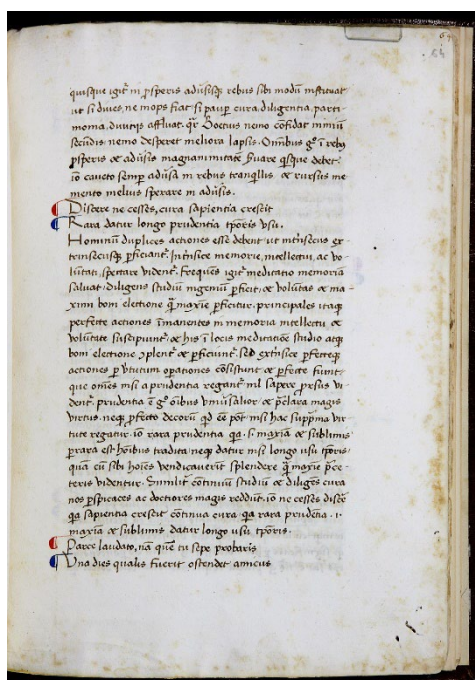 64
quisque igit̃ in ꝓsperis aduisisq; rebus sibi modũ instituat
ut si diues, ne inops fiat si paup̃ cura, diligentia, parti
monia, diuitijs affluat. qr̃ Boetus nemo cõfidat nimiũ
secũdis: nemo desperet meliora lapsis. Omĩbus gͦ ĩ rebꝫ
ꝓsperis & aduisis magnanimitatẽ seruare qsque debet:
iõ caueto semp̃ aduisa in rebus tranqllis. & rursus me
mento melius sperare in aduisis.
Discere ne cesses, cura sapientia crescit
Rara datur longo prudentia tp̃oris usu.
Hominũ duplices actiones esse debent ut intrĩsecus ex
trinsecusq; ꝑficiant̃. Intrĩsice memorie, intellectui, ac vo
lũtati, spectare vident̃. Frequẽs igit̃ meditatio memoriã
saluat, diligens studiũ ingeniũ ꝑficit, & voluntas & ma
ximi boni electione q̃ maxĩe ꝑficitur. principales itaq;
perfecte actiones ĩmanentes in memoria intellectu &
volũtate suscipiunt̃. & his ĩ locis meditatiõe studio atq;
boni electione ↄplent̃ & ꝑficiunt̃. sed extrĩsice ꝑfecteq;
actiones ꝑ v̓tutum oꝑationes cõsistunt & ꝑfecte sunt.
que omẽs nisi a prudentia regant̃ nil sapere ꝓrsus vi
dent̃. prudentia ẽ gͦ oĩbus vniũsalior & p̃clara magis
virtus. neq; ꝓfecto decorũ qd ẽẽ põt nisi hac supp̃ma vir
tute regatur. iõ rara prudentia qa .i. maxĩa & sublimis
ꝑrara est hoĩbus tradita neq; datur nisi longo usu tp̃oris.
quã cũ sibi hoĩes vendicauerint splendere q̃ maxĩe p̃ce
teris videntur. Similit̃ cõtinuũ studiũ & diligẽs cura
nos ꝑspicaces ac doctiores magis reddũt. iõ ne cesses discẽ
qa sapientia crescit continua cura. qa rara prudẽtia .i.
maxĩa & sublimis datur longo usu tp̃oris.
Parce laudato, nã quẽ tu sepe probaris
Vna dies qualis fuerit ostendet amicus